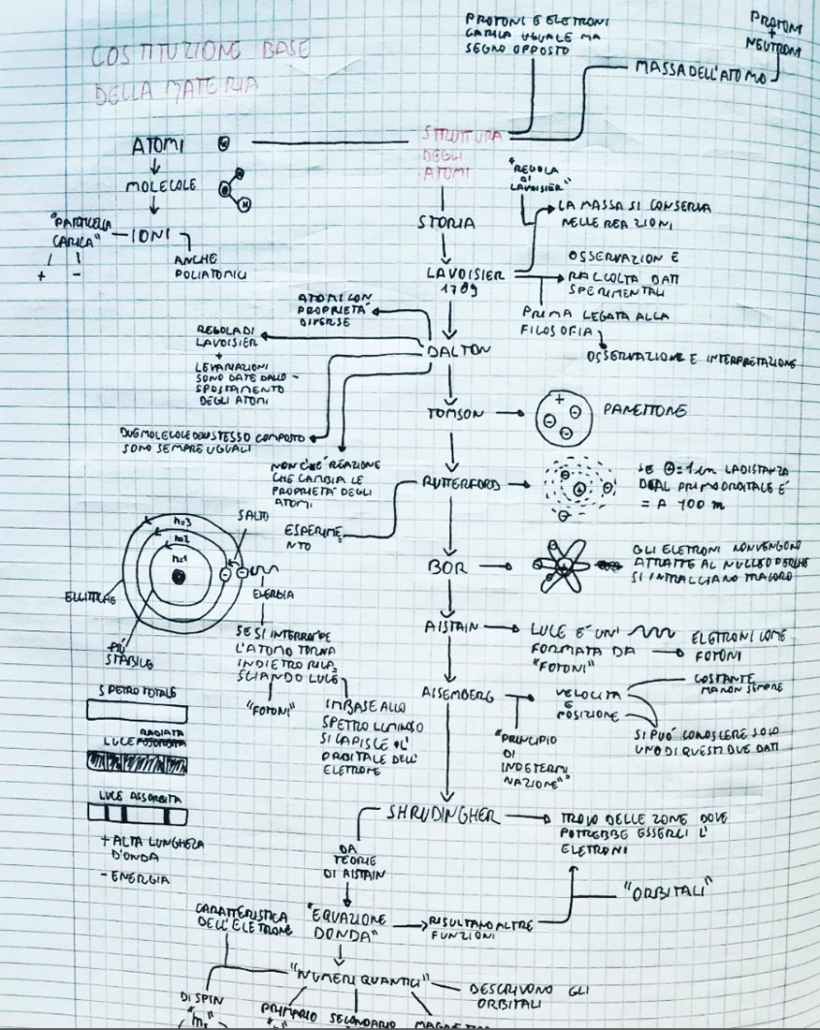 COSTITUZIONE BASE
DELLA MATERIA
PROTONI E ELETRONI
CARICA UGUALE MA
SEGNO OPPOSTO
PROTONI
+
NEUTRONI
MASSA DELL'ATOMO
ATOMI
MOLECOLE
IONI
"PARTICELLA
CARICA"
+ -
ANCHE
POLIATOMICI
STRUTTURA
DEGLI
ATOMI
STORIA
"REGOLA
DI
LAVOISIER"
LA MASSA SI CONSERVA
NELLE REAZIONI
LAVOISIER
1789
OSSERVAZION E
RACCOLTA DATI
SPERIMENTALI
PRIMA LEGATA ALLA
FILOSOFIA
OSSERVAZIONE E INTERPRETAZIONE
ATOMI CON
PROPRIETA'
DIVERSE
REGOLA DI
LAVOISIER
+
LE VARIAZIONI
SONO DATE DALLO
SPOSTAMENTO
DEGLI ATOMI
DALTON
DUE MOLECOLE DELLO STESSO COMPOSTO
SONO SEMPRE UGUALI
NON C'E' REAZIONE
CHE CAMBIA LE
PROPRIETA' DEGLI
ATOMI
TOMSON
+
PANETTONE
RUTTERFORD
SE = 1 cm LA DISTANZA
DAL PRIMO ORBITALE E'
= A 100 m
ESPERIME
NTO
n=3
n=2
n=1
SALTO
ENERGIA
ELLITTICHE
PIÙ
STABILE
BOR
GLI ELETRONI NON VENGONO
ATTRATTE AL NUCLEO PERCHE
SI INTRALCIANO TRA LORO
AISTAIN
LUCE E' UN'
FORMATA DA
"FOTONI"
ELETRONI COME
FOTONI
SE SI INTERROMPE
L'ATOMO TORNA
INDIETRO RILA
SCIANDO LUCE
"FOTONI"
IN BASE ALLO
SPETRO LUMINOSO
SI CAPISCE L'
ORBITALE DELL'
ELETRONE
AISEMBERG
VELOCITA
E
POSIZIONE
COSTANTE
MA NON SEMPRE
SI PUO' CONOSCERE SOLO
UNO DI QUESTI DUE DATI
"PRINCIPIO
DI
INDETERMI
NAZIONE"
SPETRO TOTALE
RADIATA
LUCE
LUCE ASSORBITA
+ ALTA LUNGHEZA
D'ONDA
- ENERGIA
SHRUDINGHER
TROVO DELLE ZONE DOVE
POTREBBE ESSERCI L'
ELETRONI
DA
TEORIE
DI AISTAIN
"ORBITALI"
"EQUAZIONE
DONDA"
RISULTANO ALTRE
FUNZIONI
CARATTERISTICA
DELL'ELETRONE
"NUMERI QUANTICI"
DESCRIVONO GLI
ORBITALI
DI SPIN
PRIMARIO
SECONDARIO